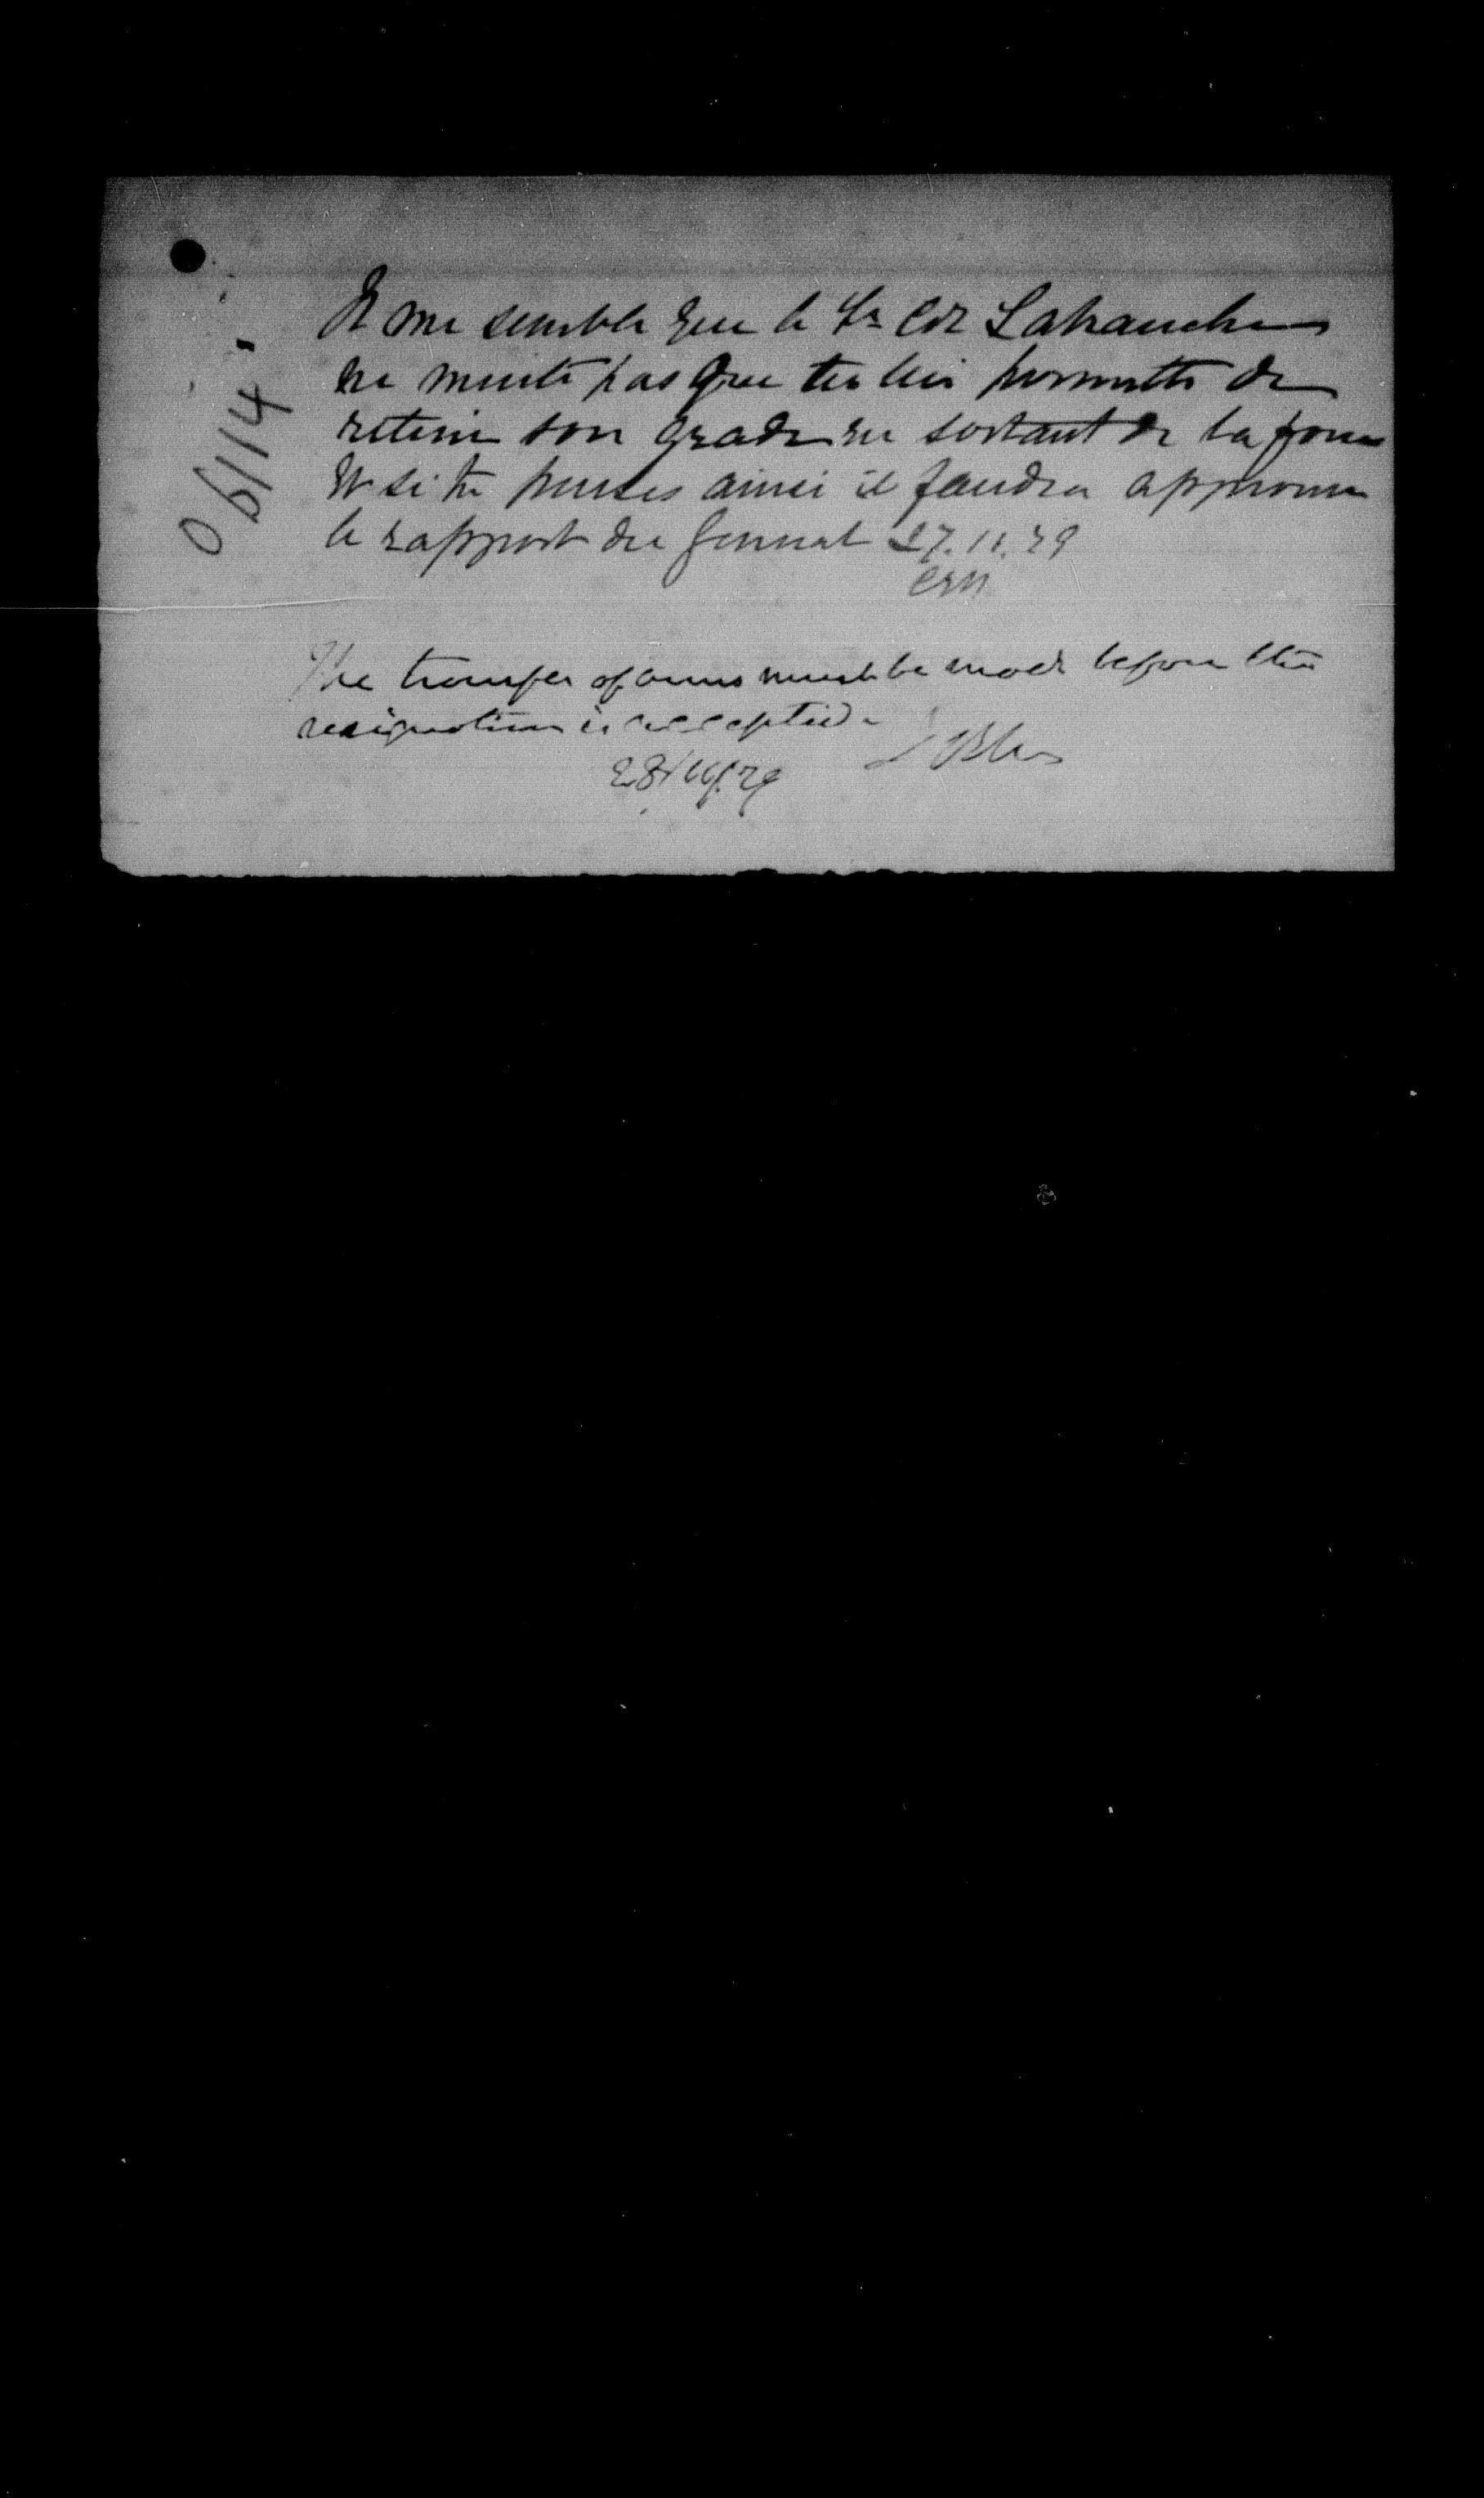 06114.
Il me semble que le Lt Col Labranche
ne merite pas que tu lui permette de
retenir son grade en sortant de la force
Et si tu penses ainsi il faudra approuver
le rapport du General 27.11.79
The transfer of arms must be made before this
resignation is accepted.
28/11/79